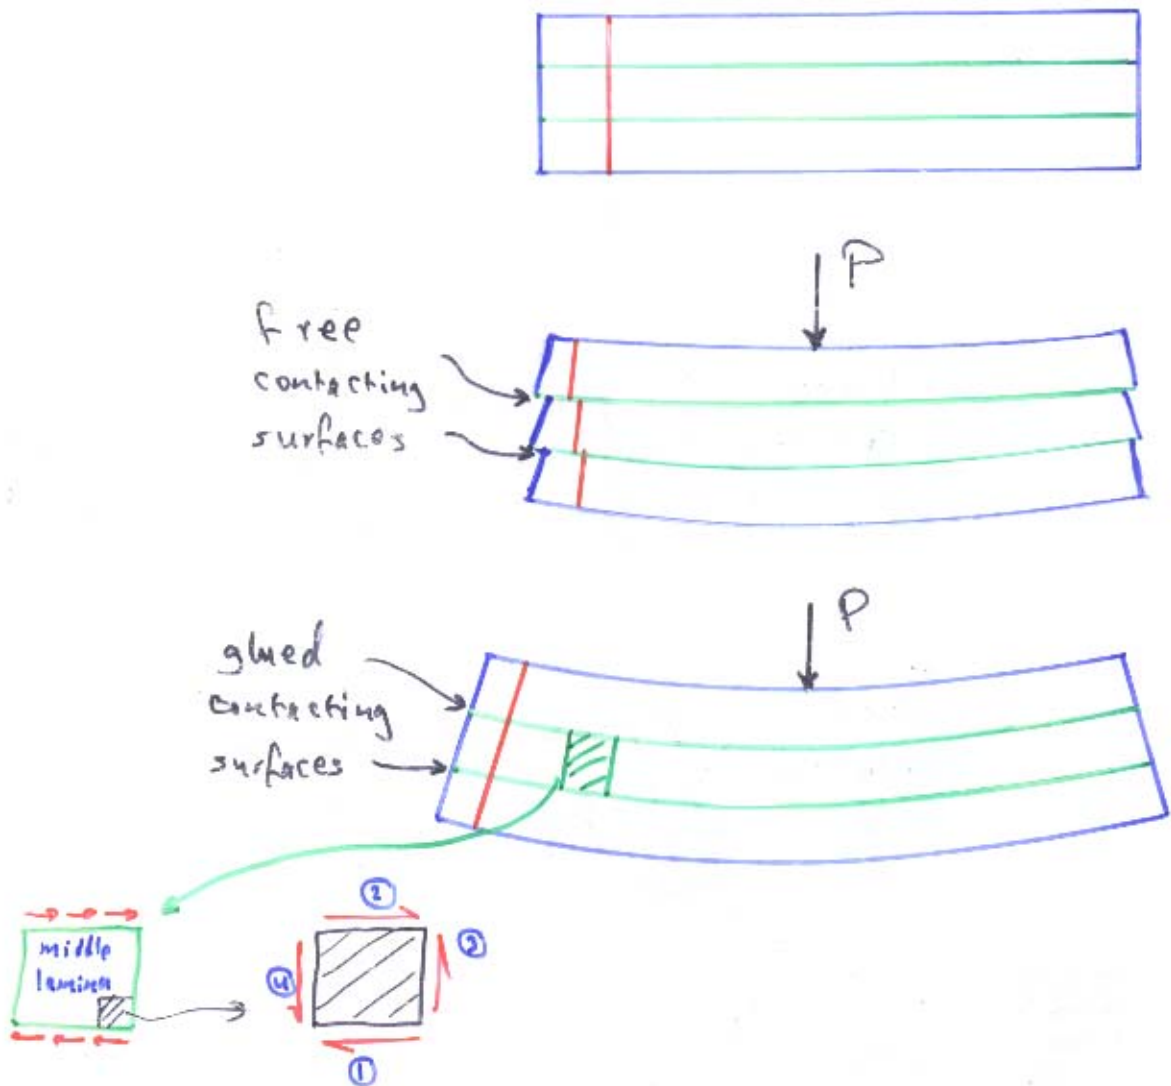 P
free
contacting
surfaces
P
glued
contacting
surfaces
middle
lamina
②
③
④
①